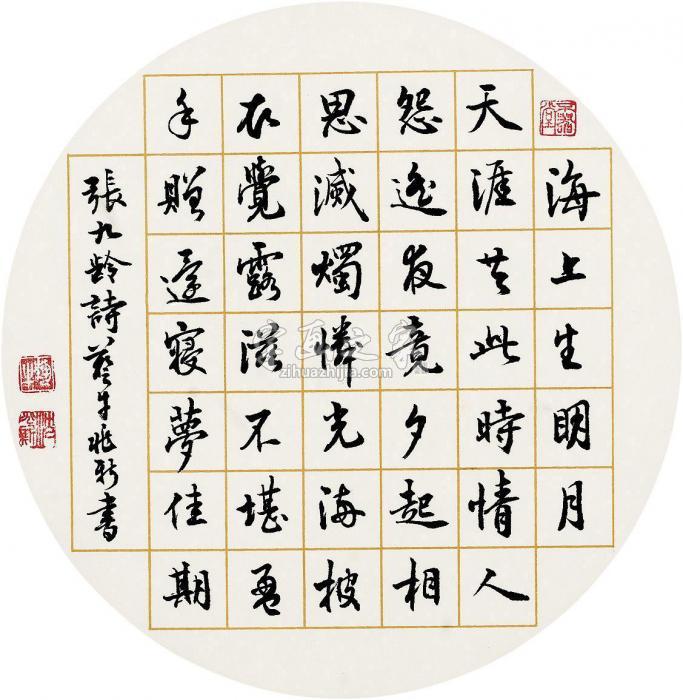 海上生明月
天涯共此時情人
怨遙夜竟夕起相
思滅燭憐光海披
衣覺露滋不堪盈
手贈還寢夢佳期
張九齡詩 書
字画之家
zihuazhijia.com